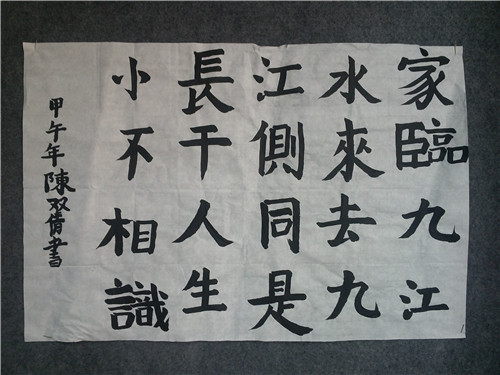 家臨九江
水來去九
江側同是
長干人生
小不相識
甲午年陳双倩書